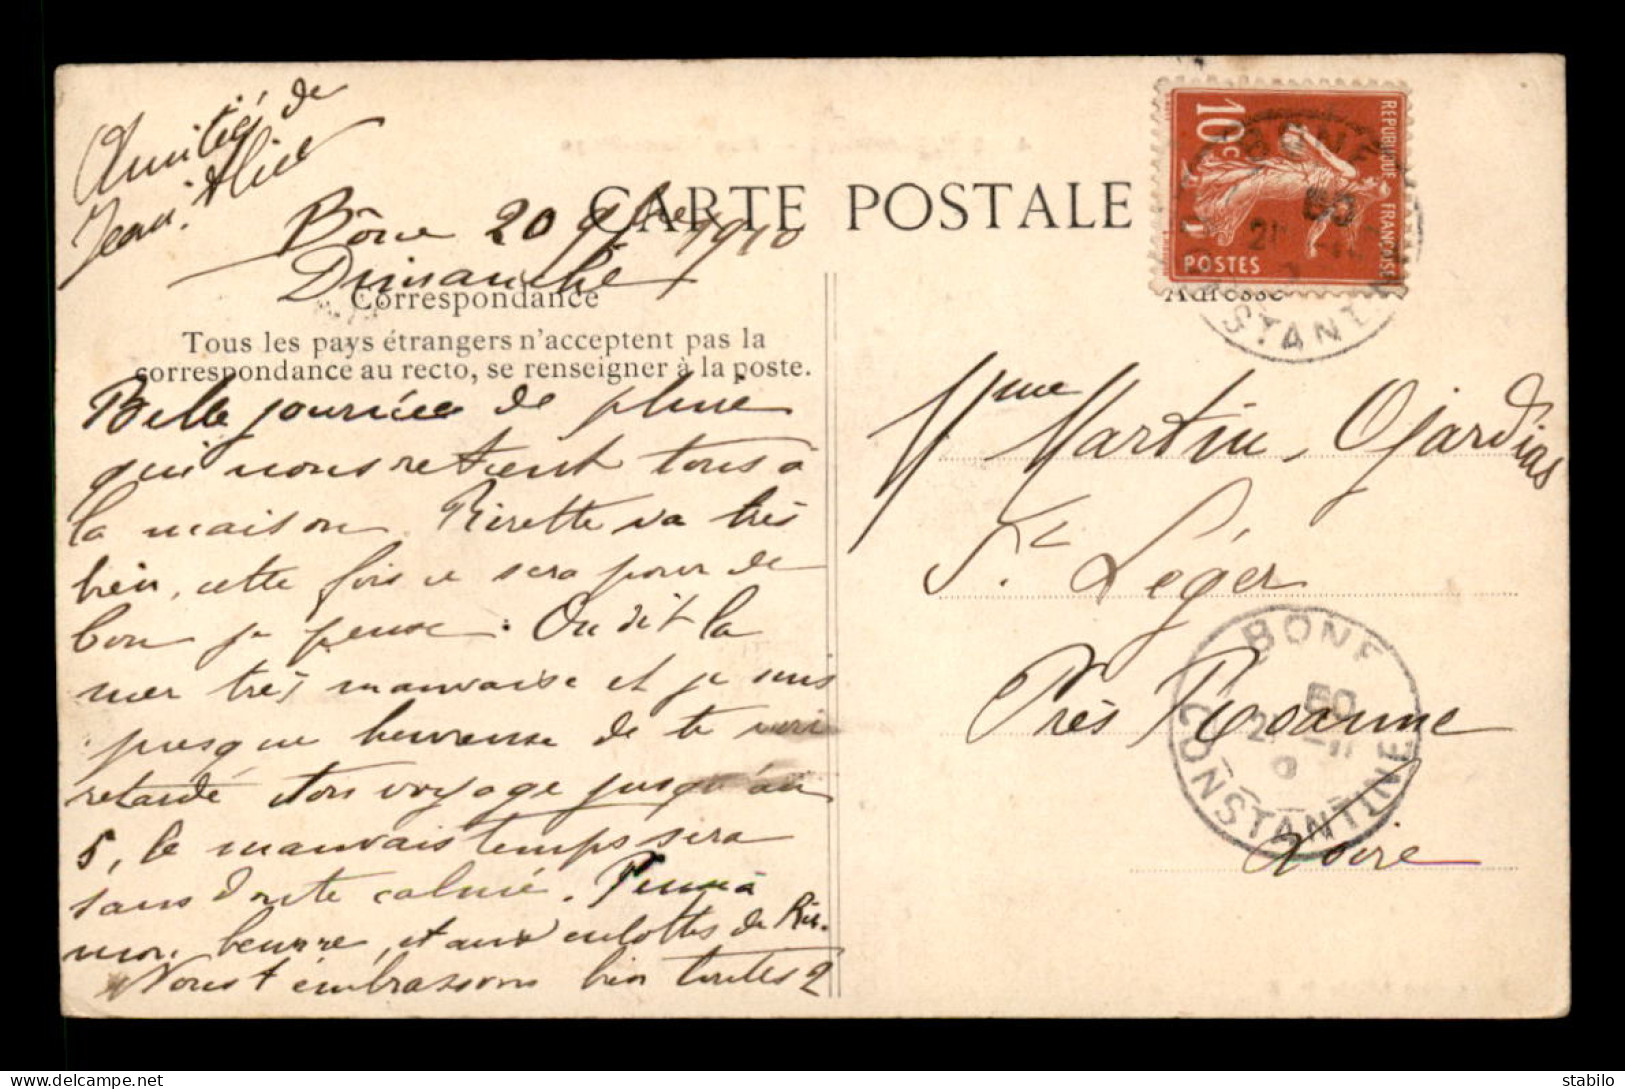 Amitiés de
Jean. Alice
Bône 20 9bre 1910
Dimanche
CARTE POSTALE
Correspondance
Tous les pays étrangers n'acceptent pas la
correspondance au recto, se renseigner à la poste.
Belle journée de pluie
qui nous retient tous à
la maison. Rirette va très
bien, cette fois ce sera pour de
bon je pense. On dit la
mer très mauvaise et je suis
presque heureuse de te voir
retardé ton voyage jusqu'au
5, le mauvais temps sera
sans doute calmé. Pense à
mon beurre, et aux culottes de Rir.
Nous t'embrassons bien toutes 2
REPUBLIQUE FRANÇAISE
10c
POSTES
BONE
CONSTANTINE
Adresse
Mme Martin Ojardias
St Léger
Près Roanne
Loire
BONE
CONSTANTINE
stabilo